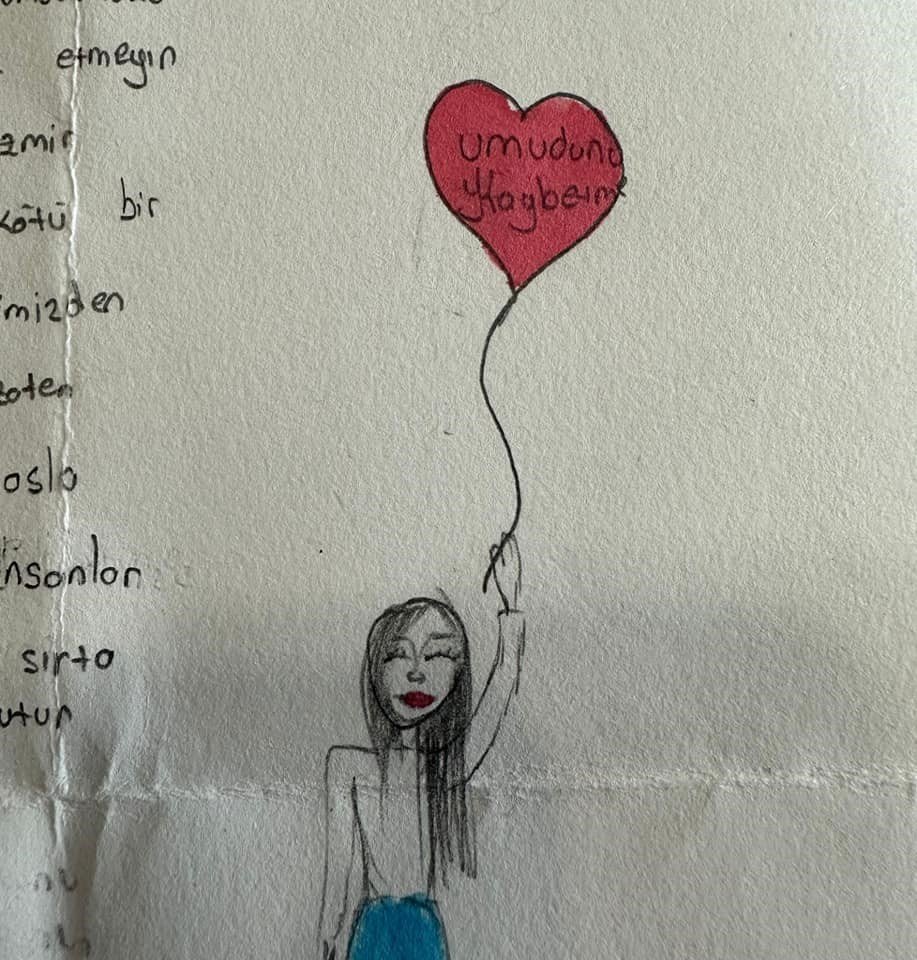 etmeyin
zmir
kötü bir
mizden
zaten
asla
insanlar
sırta
utun
umudunu
Kaybetme